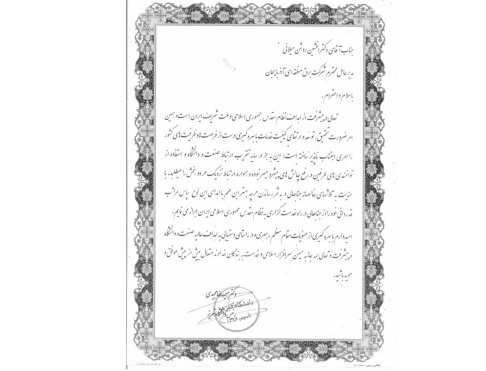 جناب آقای دکتر افشین روشن میلانی
مدیرعامل محترم شرکت برق منطقه ای آذربایجان
با سلام و احترام؛
تعالی و پیشرفت از اهداف نظام مقدس جمهوری اسلامی و ملت شریف ایران است و همین
امر ضرورت تحقیق، توسعه و ارتقای کیفیت خدمات با بهره گیری درست از فرصت ها و ظرفیت های کشور
را امری اجتناب ناپذیر ساخته است؛ این به جز در سایه تقریب ارتباط صنعت و دانشگاه و استفاده از
توانمندی های طرفین در رفع چالش های پیشرو میسر نبوده و همواره ارتباط نزدیک هر دو بخش را میطلبد. با
عنایت به تلاشهای خالصانه جنابعالی در به ثمر رساندن هرچه بهتر این مهم با اهدای این لوح سپاس مراتب
قدردانی خود را از جنابعالی در راه خدمت گزاری به نظام مقدس جمهوری اسلامی ایران ابراز می نمایم.
امیدوارم با بهره گیری از منویات مقام معظم رهبری و در راستای دستیابی به اهداف عالیه صنعت و دانشگاه
در پیشرفت و تعالی همه جانبه میهن سرافراز اسلامی و خدمت به بندگان خداوند متعال بیش از پیش موفق و
موید باشید.